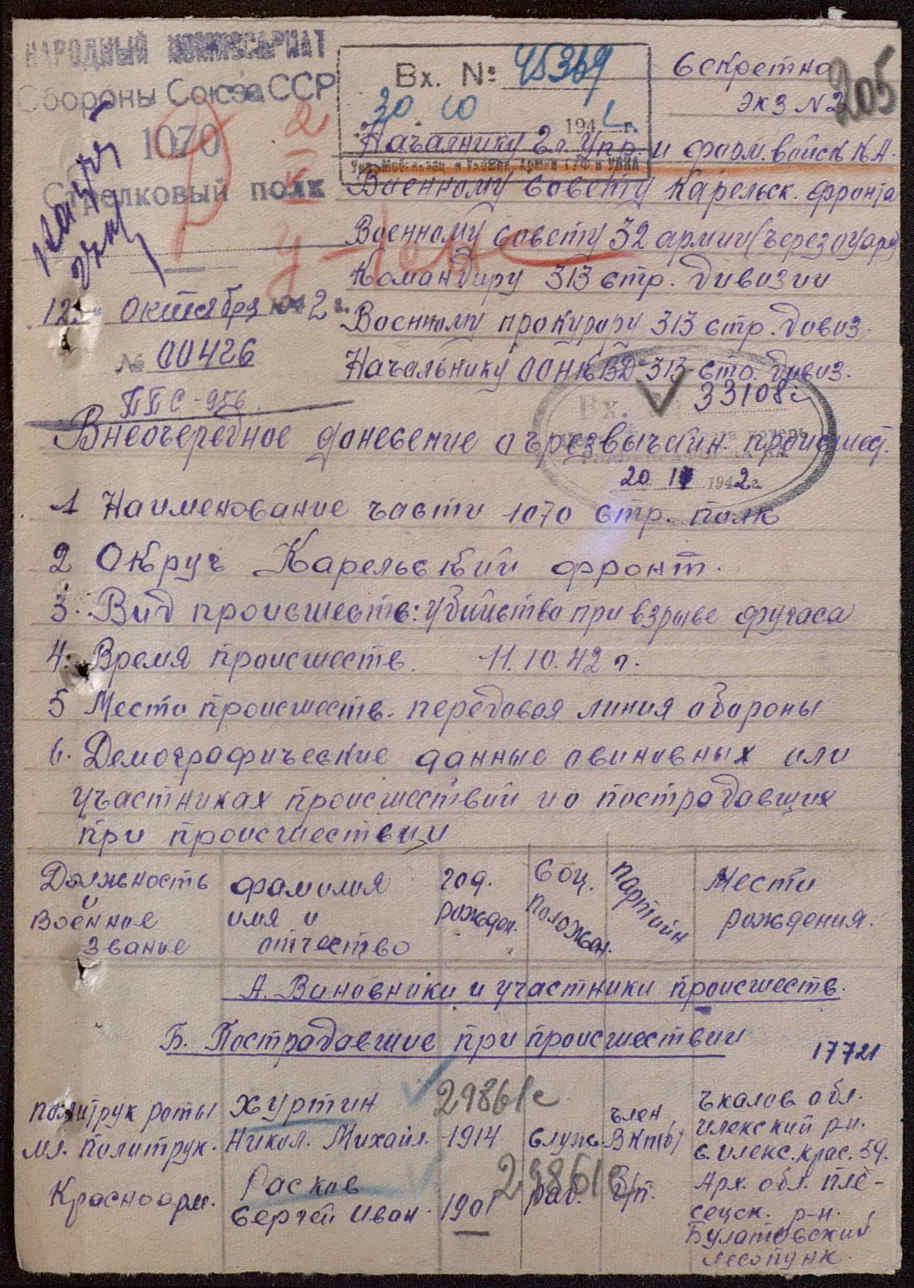 НАРОДНЫЙ КОМИССАРИАТ
Обороны Союза ССР
1070
Стрелковый полк
12 октября 1942 г.
№ 00426
ППС-956
Вх. № 45369
30 10 194 г.
Секретно
205
Экз N 2
Начальнику Гл. Упр. и форм. войск К.А.
Военному совету Карельск. фронта
Военному совету 32 армии
Командиру 313 стр. дивизии
Военному прокурору 313 стр. дивиз.
Начальнику ООНКВД 313 стр. дивиз.
Вх. 33108с
20 1942 г.
Внеочередное донесение о чрезвычайн. происшест.
1 Наименование части 1070 стр. полк
2 Округ Карельский фронт.
3. Вид происшеств: убийство при взрыве фугаса
4. Время происшеств. 11.10.42 г.
5 Место происшеств. передовая линия обороны
6. Демографические данные о виновных или
участниках происшествий и о пострадавших
при происшествии
Должность и военное звание
фамилия имя и отчество
год. рожден.
Соц. положен.
партийн
Место рождения.
А. Виновники и участники происшеств.
Б. Пострадавшие при происшествии
17721
29861с
политрук роты
мл. политрук.
Хуртин
Никол. Михайл.
1914
служ.
член
ВКП(б)
Чкалов обл.
Илекский рн.
с. Илекс. крас. 59.
29861с
Красноарм.
Расков
Сергей Иван.
1901
раб.
б/п.
Арх. обл. Пле-
сецск. р-н.
Булатовский
лесопунк.